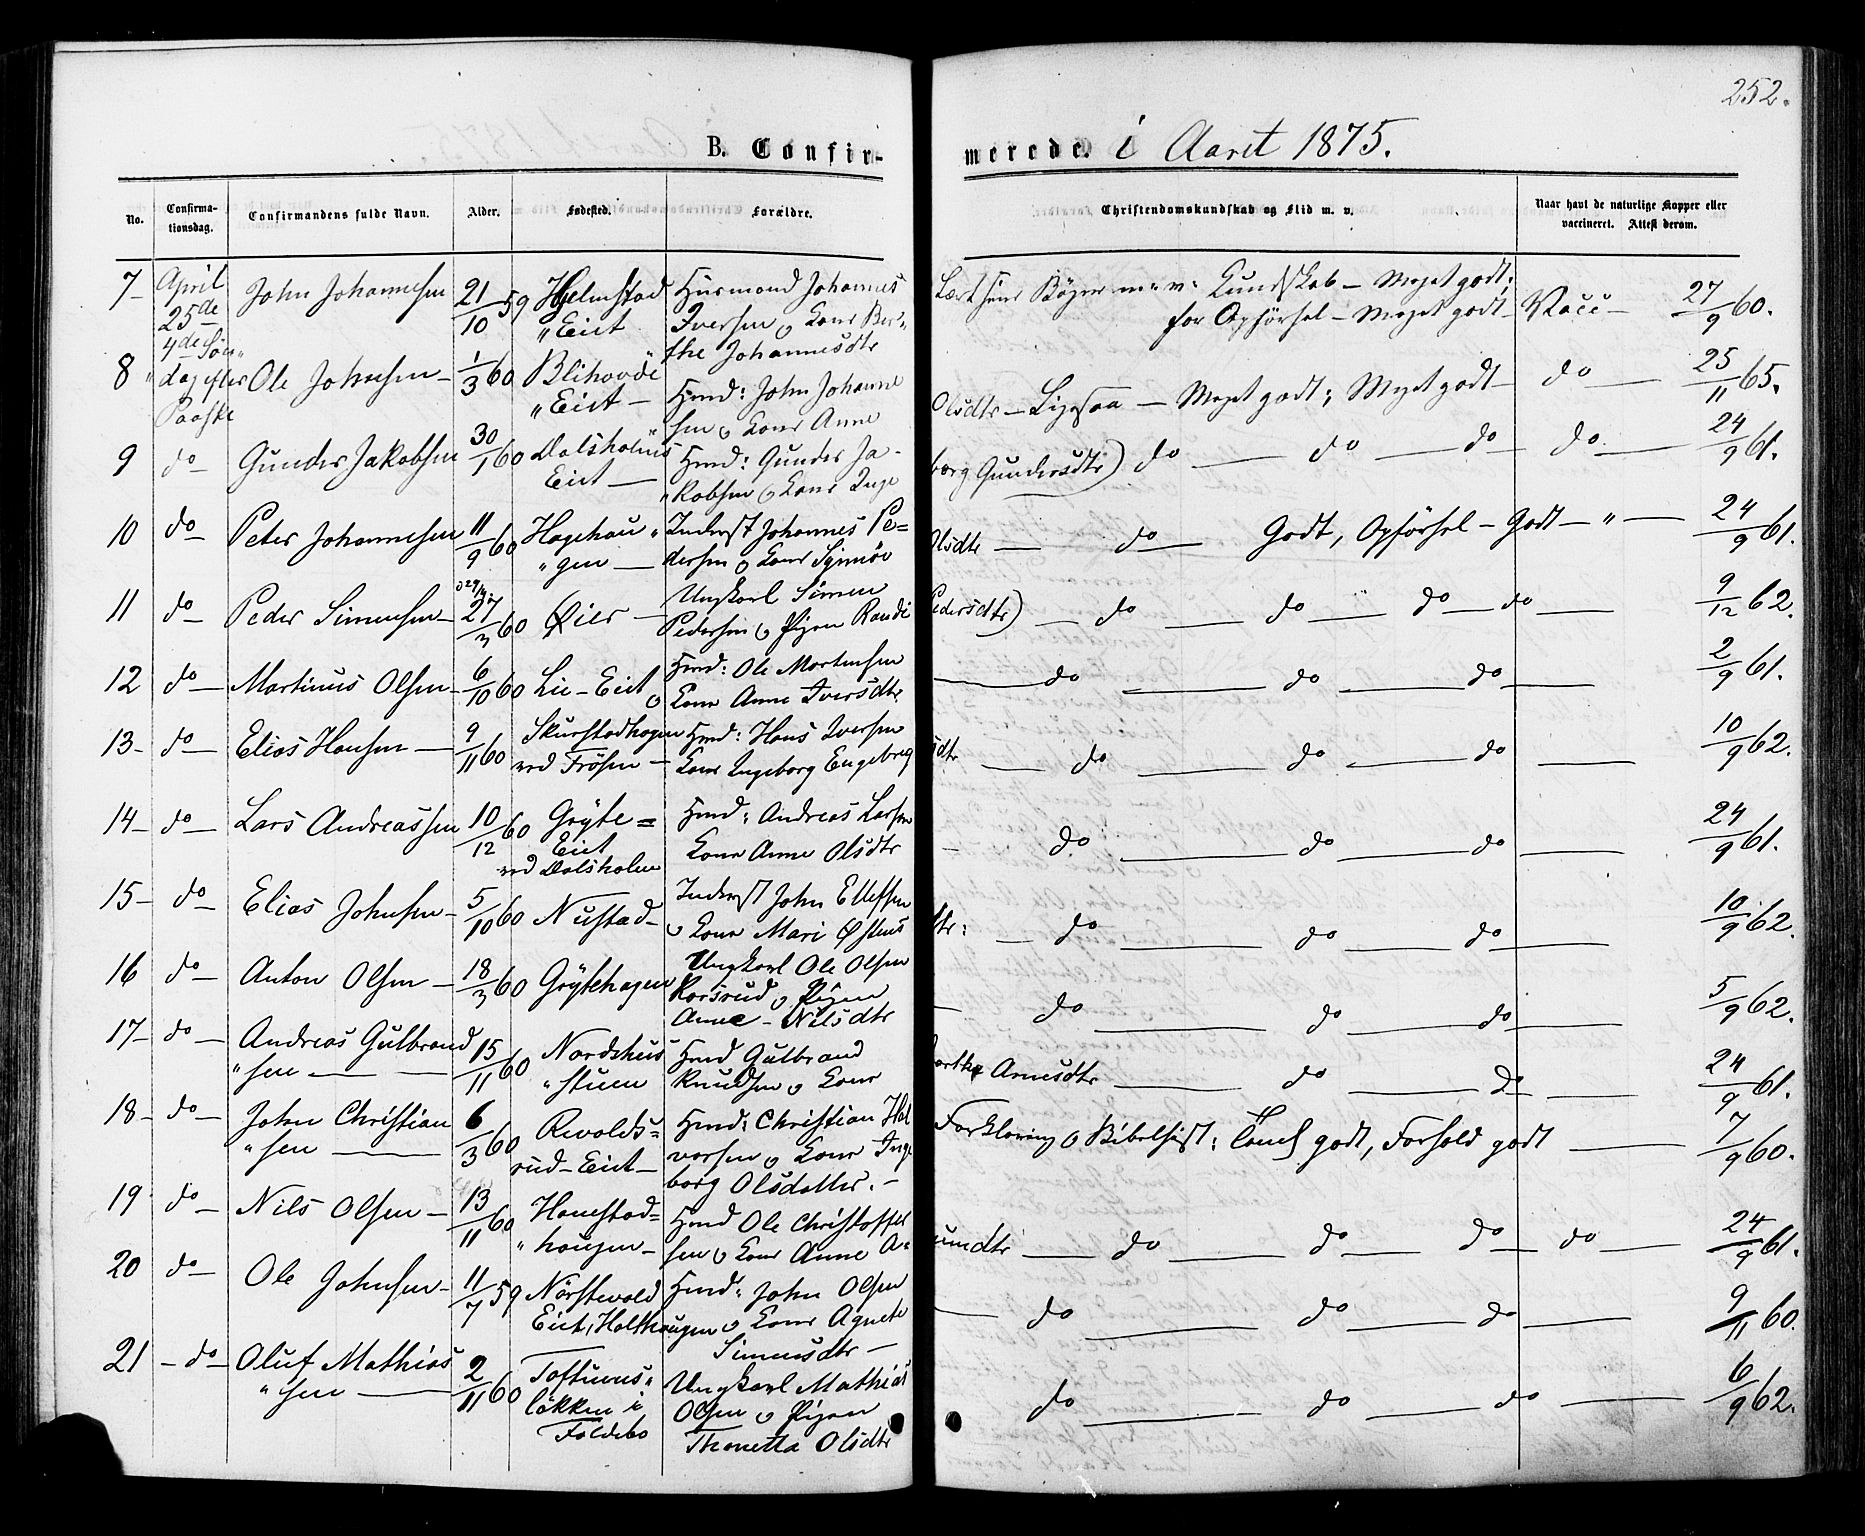 252.
B. Confir-
merede. i Aaret 1875.
No.
Confirma-
tionsdag.
Confirmandens fulde Navn.
Alder.
Fødested.
Forældre.
Christendomskundskab og Flid m. v.
Naar havt de naturlige Kopper eller
vaccineret. Attest derom.
7 – April 25de 4de Søn„ John Johannesen 21/10 59 Hjelmstad „Eiet Huusmand Johannes
Iversen o Kone Ber„
the Johannesdtr
Læst sine Bøger m. v. Kundskab – Meget godt;
for Opførsel – Meget godt – Vacc – 27/9 60.
8 „dag efter Paaske Ole Johnsen – 1/3 60 Blihovde „Eiet – Hmd: John Johanne
sen o Kone Anne
Olsdtr – Ligesaa – Meget godt; Meget godt – do – 25/11 65.
9 do – Gunder Jakobsen 30/1 60 Dalsholms Eiet – Hmd: Gunder Ja-
„kobsen o Kone Inge
borg Gundersdtr) do – do – do – do – 24/9 61.
10 do – Peter Johannesen 11/9 60 Hagehau„ „gen – Inderst Johannes Pe=
dersen o Kone Synnöv
Olsdtr – do – Godt, Opförsel – Godt – „ – 24/9 61.
11 do – Peder Simensen – 27/3 60 Øier – Ungkarl Simen
Pedersen o Pigen Randi
Pedersdtr) – do – do – do – do – 9/12 62.
12 do – Martinus Olsen – 6/10 60 Lie – Eiet o Hmd: Ole Mortensen
Kone Anne Iversdtr
– do – do – do – 2/9 61.
13 – do – Elias Hansen – 9/11 60 Skurstadhagen ved Frösen – Hmd: Hans Iversen
Kone Ingeborg Engebreg
sdtr – do – do – do – 10/9 62.
14 – do – Lars Andreassen 10/12 60 Gryte= Eiet ved Dalsholm Hmd: Andreas Larsen
Kone Anne Olsdtr
– do – do – do – 24/9 61.
15 – do – Elias Johnsen – 5/10 60 Nustad – Inderst John Ellefsen
o Kone Mari Østens
dtr: – do – do – do – 10/9 62.
16 do – Anton Olsen – 18/3 60 Grytehagen Ungkarl Ole Olsen
Korsrud o Pigen
Anne – Nilsdtr
– do – do – do – 5/9 62.
17 – do – Andreas Gulbrand „sen – 15/11 60 Nordshus „stuen Hmd Gulbrand
Knudsen o Kone
Marthe Arnesdtr – do – do – 24/9 61.
18 – do – John Christian „sen – 6/3 60 Revolds= rud – Eiet – Hmd: Christian Hal
vorsen o Kone Inge
borg Olsdatter. –
Forklaring o Bibelhist: godt, Forhold godt – 7/9 60.
19 do – Nils Olsen – 13/11 60 Hanestad= „haugen – Hmd Ole Christoffer
sen o Kone Anne A=
mundtr – do – do – do – do – 24/9 61.
20 do – Ole Johnsen – 11/7 59 Nörstevold Eiet, Holthaugen Hmd: John Olsen
o Kone Agnete
Simensdtr –
– do – do – do – 9/11 60.
21 – do – Oluf Mathias „sen – 2/11 60 Toftumus„ løkken i Foldebo Ungkarl Mathias
Olsen o Pigen
Thonetta Olsdtr
do – do – do – 6/9 62.